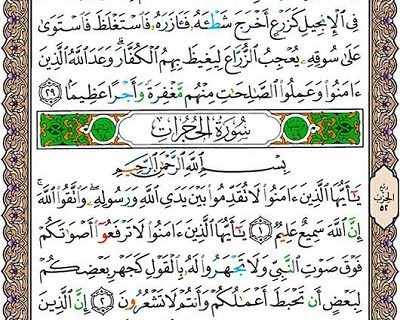 فِى ٱلْإِنجِيلِ كَزَرْعٍ أَخْرَجَ شَطْـَٔهُۥ فَـَٔازَرَهُۥ فَٱسْتَغْلَظَ فَٱسْتَوَىٰ
عَلَىٰ سُوقِهِۦ يُعْجِبُ ٱلزُّرَّاعَ لِيَغِيظَ بِهِمُ ٱلْكُفَّارَ ۗ وَعَدَ ٱللَّهُ ٱلَّذِينَ
ءَامَنُوا۟ وَعَمِلُوا۟ ٱلصَّـٰلِحَـٰتِ مِنْهُم مَّغْفِرَةً وَأَجْرًا عَظِيمًۢا ٢٩
سُورَةُ الحُجُرَاتِ
بِسْمِ ٱللَّهِ ٱلرَّحْمَـٰنِ ٱلرَّحِيمِ
يَـٰٓأَيُّهَا ٱلَّذِينَ ءَامَنُوا۟ لَا تُقَدِّمُوا۟ بَيْنَ يَدَىِ ٱللَّهِ وَرَسُولِهِۦ ۖ وَٱتَّقُوا۟ ٱللَّهَ ۚ
إِنَّ ٱللَّهَ سَمِيعٌ عَلِيمٌ ١ يَـٰٓأَيُّهَا ٱلَّذِينَ ءَامَنُوا۟ لَا تَرْفَعُوٓا۟ أَصْوَٰتَكُمْ
فَوْقَ صَوْتِ ٱلنَّبِىِّ وَلَا تَجْهَرُوا۟ لَهُۥ بِٱلْقَوْلِ كَجَهْرِ بَعْضِكُمْ
لِبَعْضٍ أَن تَحْبَطَ أَعْمَـٰلُكُمْ وَأَنتُمْ لَا تَشْعُرُونَ ٢ إِنَّ ٱلَّذِينَ
ربع
الحزب
٥٢